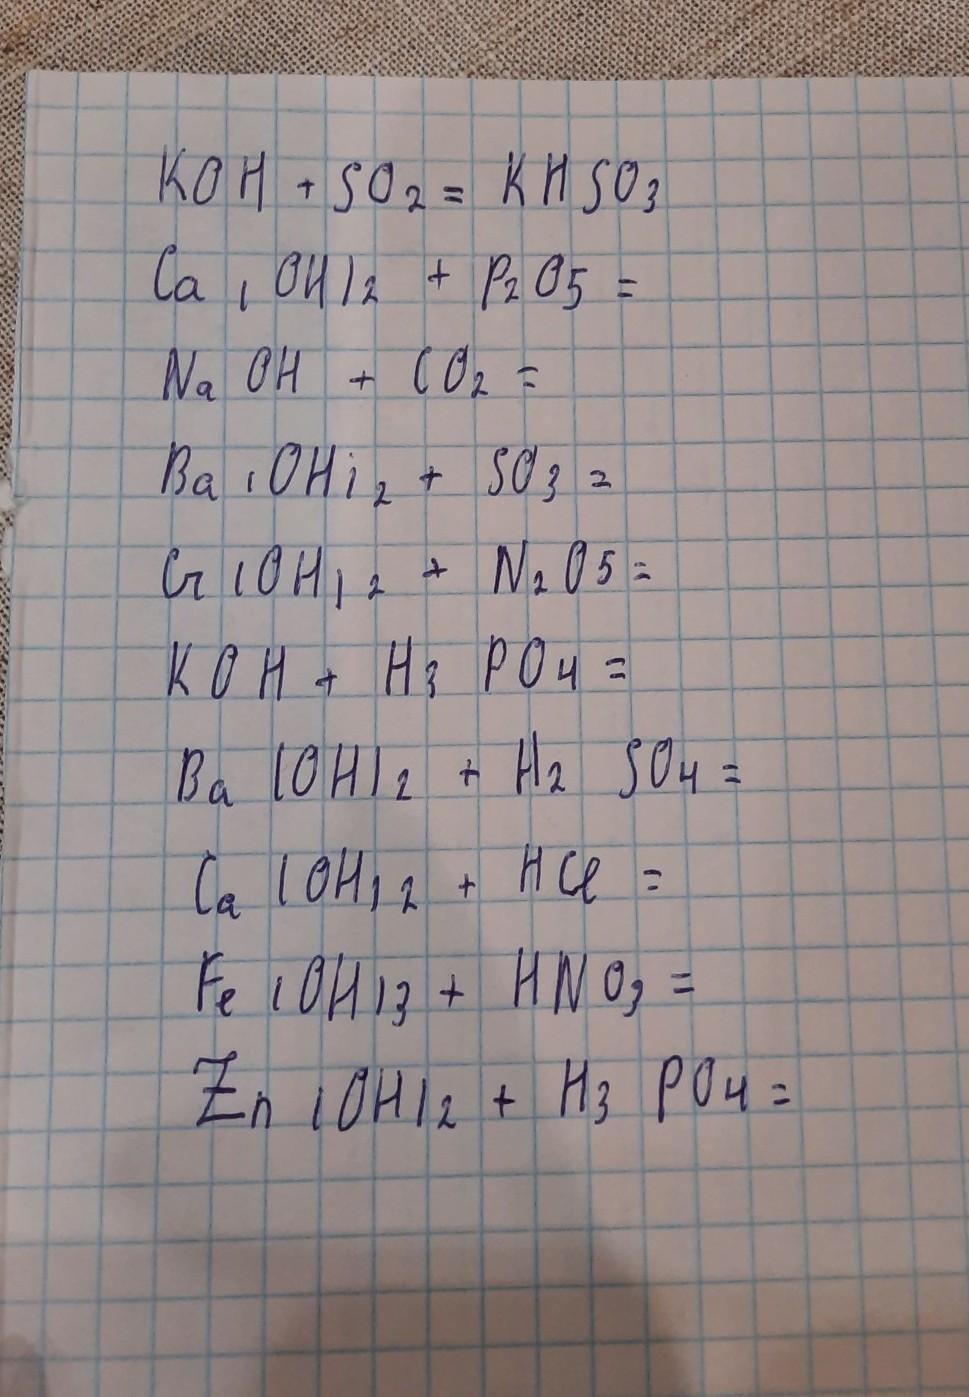 KOH + SO2 = KHSO3
Ca(OH)2 + P2O5 =
NaOH + CO2 =
Ba(OH)2 + SO3 =
Cr(OH)2 + N2O5 =
KOH + H3PO4 =
Ba(OH)2 + H2SO4 =
Ca(OH)2 + HCl =
Fe(OH)3 + HNO3 =
Zn(OH)2 + H3PO4 =